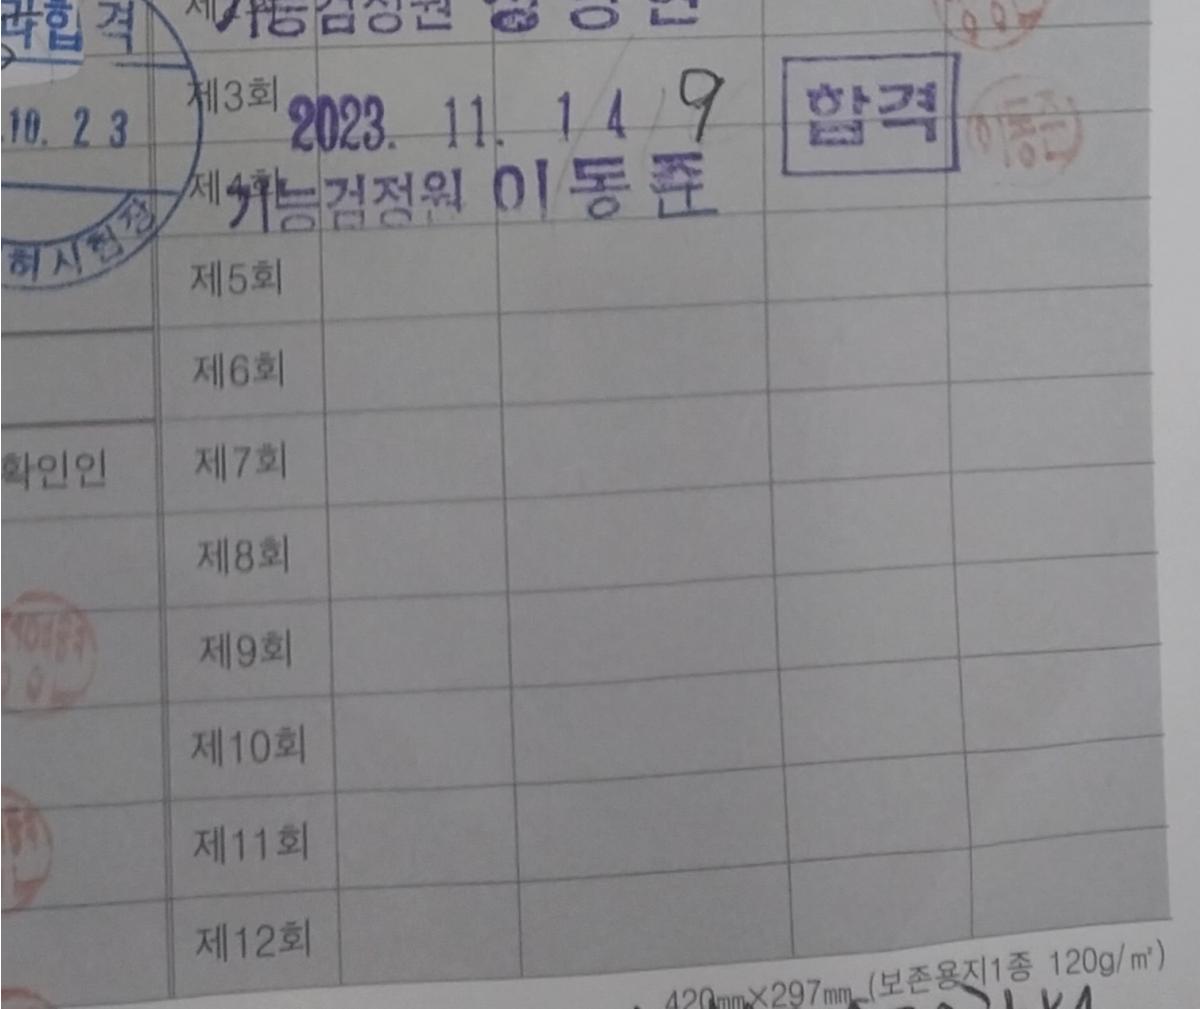 과합격
제3회 2023. 11. 14 9 합격
.10. 23
제4회 기능검정원 이동준
허시험장
제5회
제6회
확인인 제7회
제8회
제9회
제10회
제11회
제12회
420㎜×297㎜ (보존용지1종 120g/㎡)